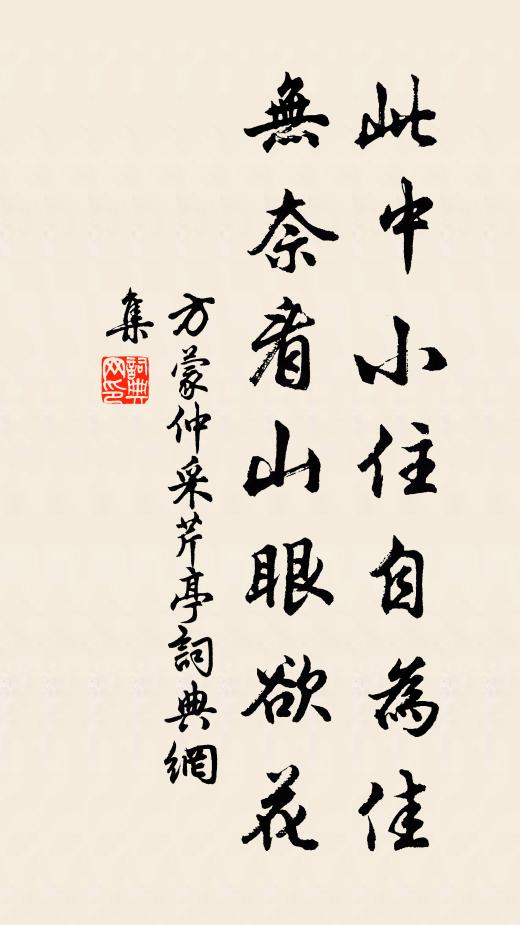 此中小住自為佳
無奈看山眼欲花
方蒙仲采芹亭詞典網
集
詞典網印